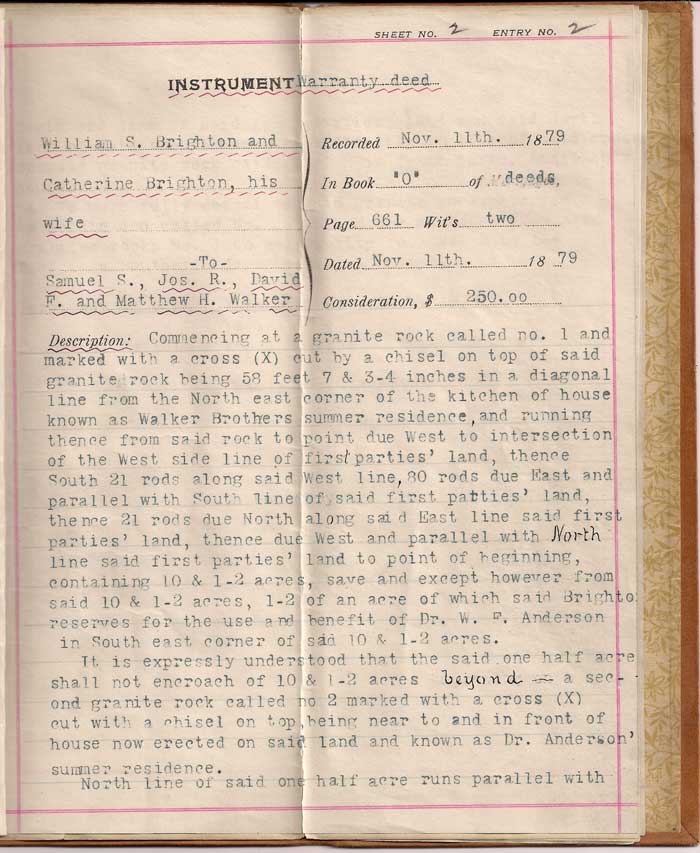 SHEET NO. 2 ENTRY NO. 2
INSTRUMENT Warranty deed
William S. Brighton and
Catherine Brighton, his
wife
-To-
Samuel S., Jos. R., David
F. and Matthew H. Walker
Recorded Nov. 11th. 1879
In Book "O" of deeds,
Page 661 Wit's two
Dated Nov. 11th. 1879
Consideration, $ 250.00
Description: Commencing at a granite rock called no. 1 and
marked with a cross (X) cut by a chisel on top of said
granite rock being 58 feet 7 & 3-4 inches in a diagonal
line from the North east corner of the kitchen of house
known as Walker Brothers summer residence, and running
thence from said rock to point due West to intersection
of the West side line of first parties' land, thence
South 21 rods along said West line, 80 rods due East and
parallel with South line of said first patties' land,
thence 21 rods due North along said East line said first
parties' land, thence due West and parallel with North
line said first parties' land to point of beginning,
containing 10 & 1-2 acres, save and except however from
said 10 & 1-2 acres, 1-2 of an acre of which said Brighto
reserves for the use and benefit of Dr. W. F. Anderson
in South east corner of sad 10 & 1-2 acres.
It is expressly understood that the said one half acre
shall not encroach of 10 & 1-2 acres beyond - a sec-
ond granite rock called no 2 marked with a cross (X)
cut with a chisel on top, being near to and in front of
house now erected on said land and known as Dr. Anderson'
summer residence.
North line of said one half acre runs parallel with